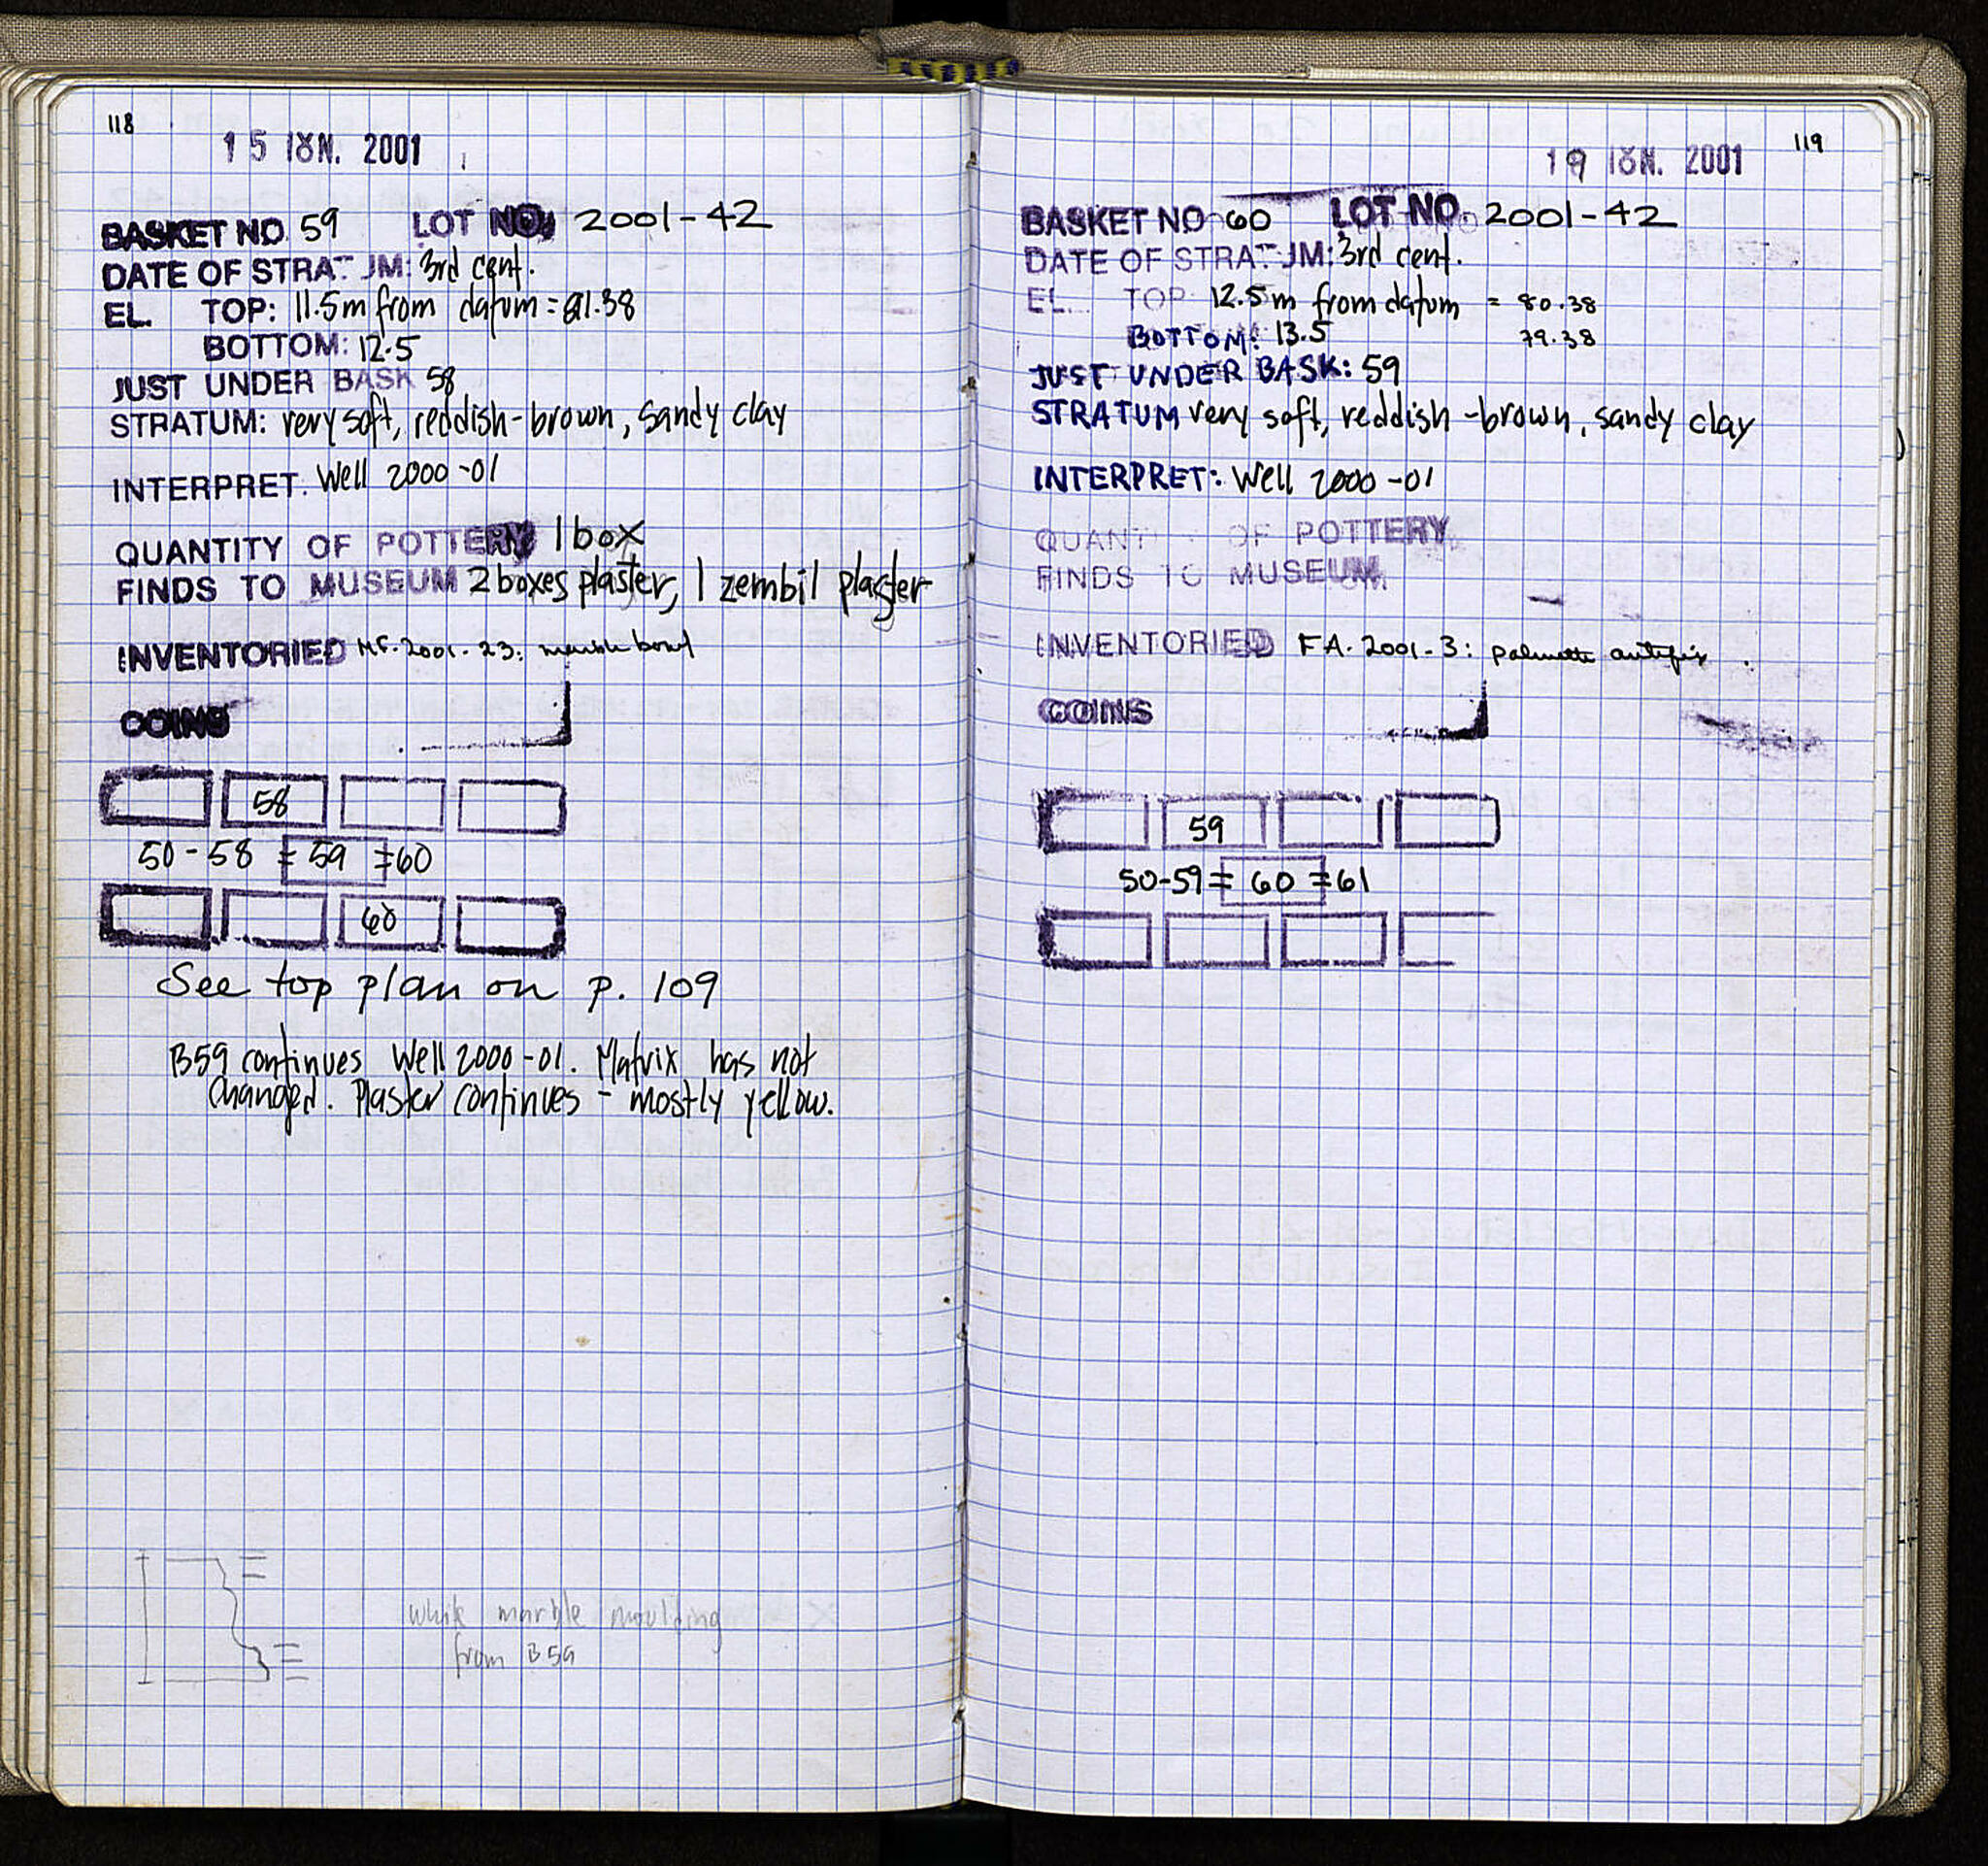 118
15 ΙΟΥΝ. 2001
BASKET NO. 59 LOT NO. 2001-42
DATE OF STRATUM: 3rd cent.
EL. TOP: 11.5m from datum = 81.38
BOTTOM: 12.5
JUST UNDER BASK 58
STRATUM: very soft, reddish-brown, sandy clay
INTERPRET. Well 2000-01
QUANTITY OF POTTERY 1 box
FINDS TO MUSEUM 2 boxes plaster, 1 zembil plaster
INVENTORIED MF-2001-23: marble bowl
COINS
58
50-58 = 59 = 60
60
See top plan on p. 109
B59 continues Well 2000-01. Matrix has not
changed. Plaster continues - mostly yellow.
white marble moulding
from B59
119
19 ΙΟΥΝ. 2001
BASKET NO 60 LOT NO. 2001-42
DATE OF STRATUM: 3rd cent.
EL. TOP: 12.5m from datum = 80.38
BOTTOM: 13.5 79.38
JUST UNDER BASK: 59
STRATUM very soft, reddish-brown, sandy clay
INTERPRET: Well 2000-01
QUANTITY OF POTTERY
FINDS TO MUSEUM
INVENTORIED FA-2001-3: palmette antefix
COINS
59
50-59 = 60 = 61